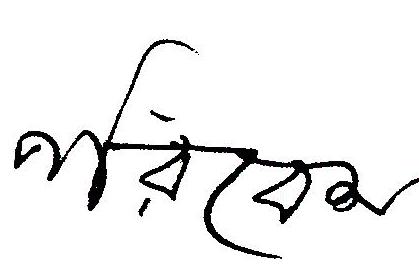 পরিবেশ